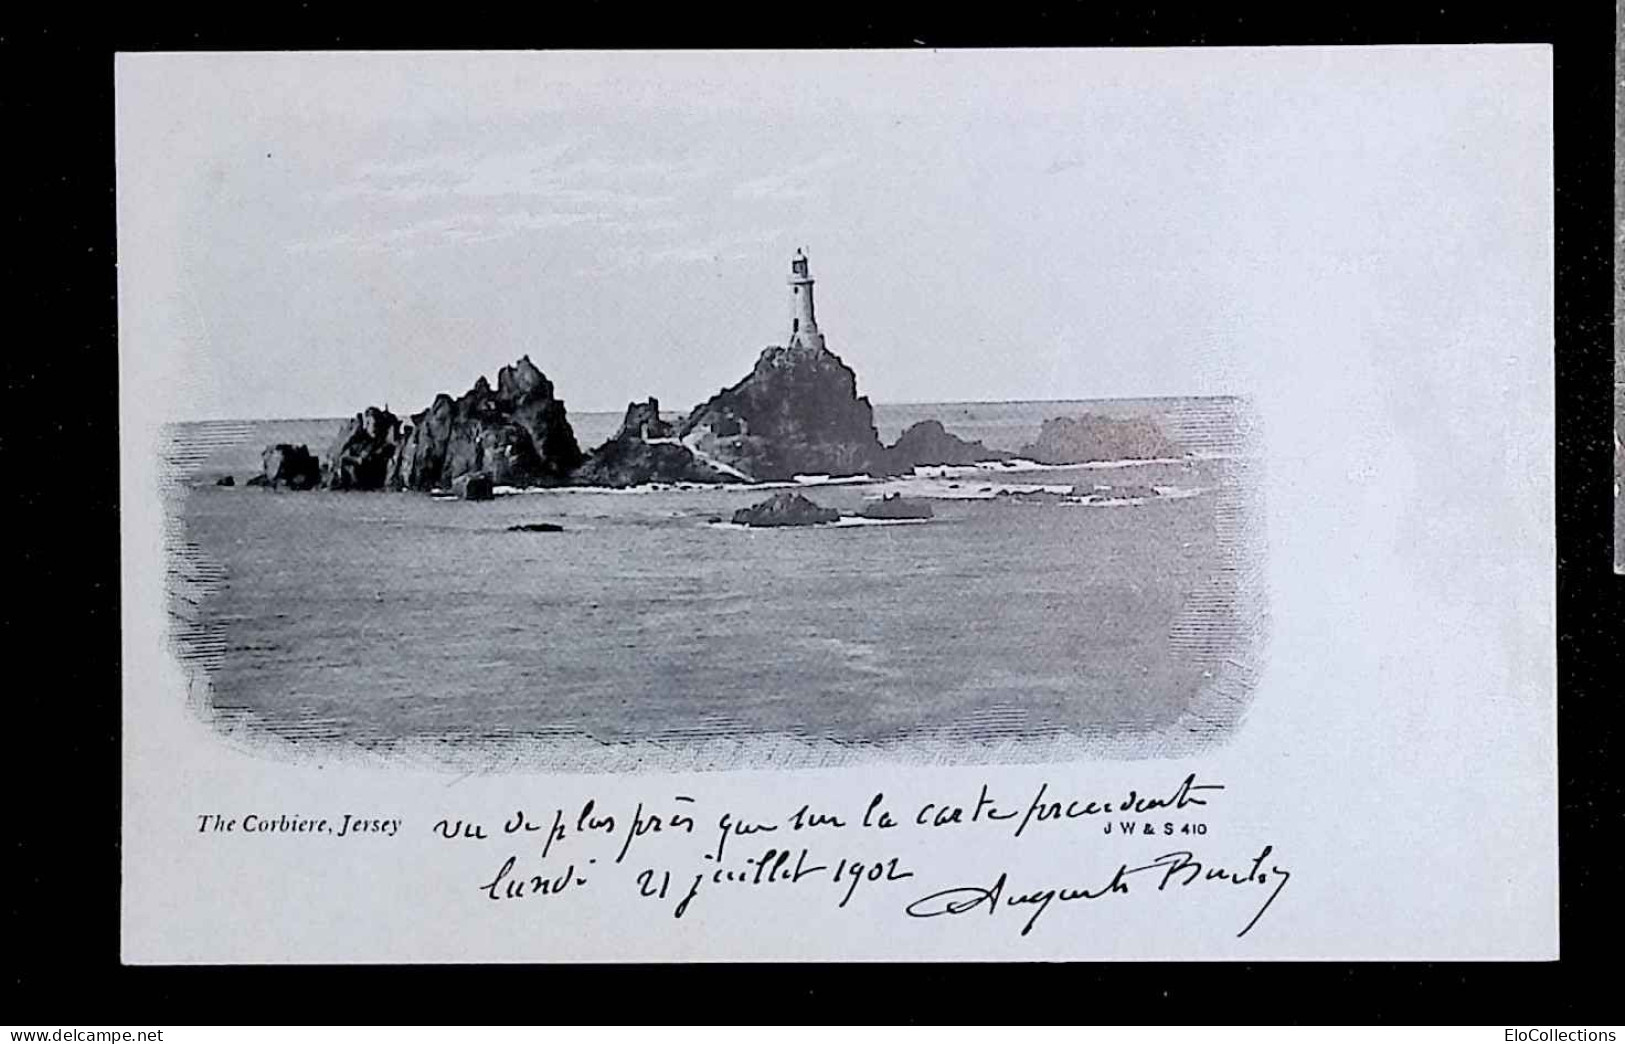 The Corbiere, Jersey
vu de plus près que sur la carte précédente
J W & S 410
lundi 21 juillet 1902
Auguste
delcampe.net
EloCollections